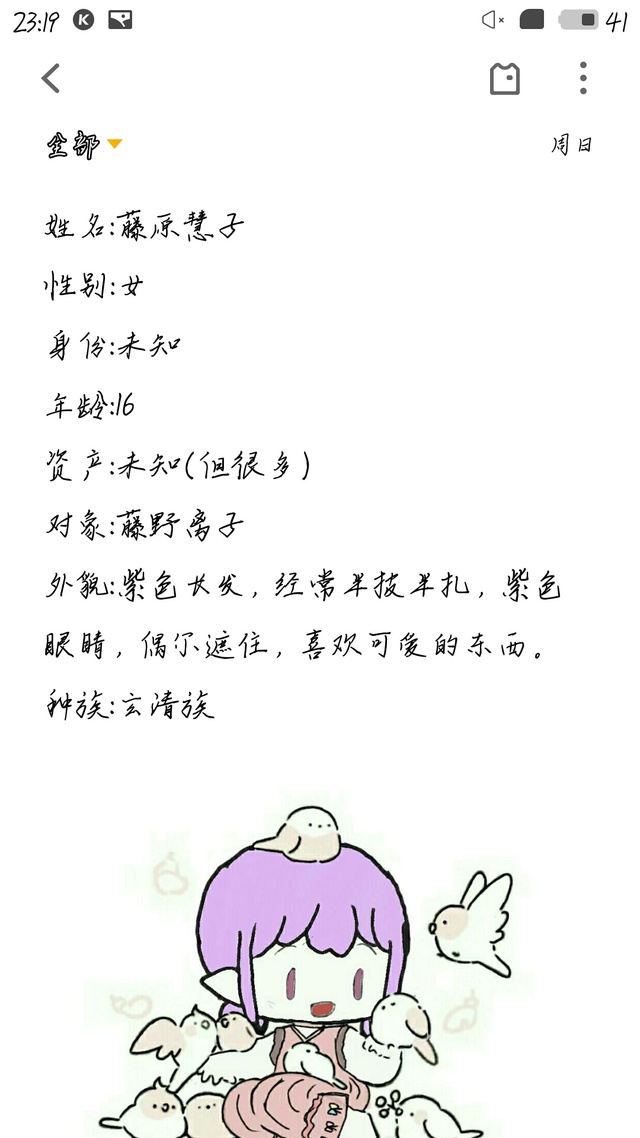 23:19
41
全部
周日
姓名:藤原慧子
性别:女
身份:未知
年龄:16
资产:未知(但很多)
对象:藤野离子
外貌:紫色长发，经常半披半扎，紫色
眼睛，偶尔遮住，喜欢可爱的东西。
种族:玄清族